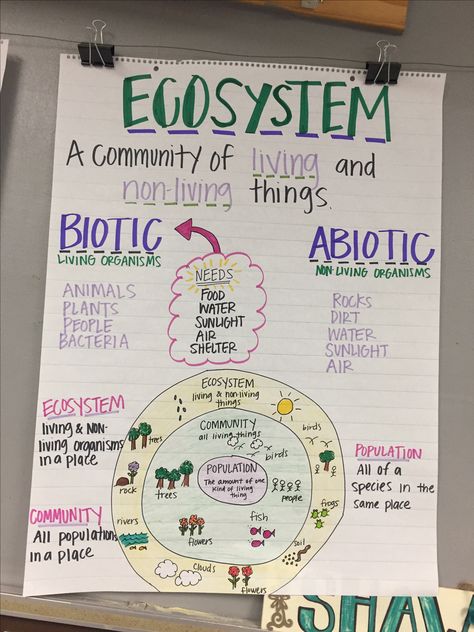 ECOSYSTEM
A COMMUNITY OF living and
non-living things.
BIOTIC
LIVING ORGANISMS
ANIMALS
PLANTS
PEOPLE
BACTERIA
NEEDS
FOOD
WATER
SUNLIGHT
AIR
SHELTER
ABIOTIC
NON-LIVING ORGANISMS
ROCKS
DIRT
WATER
SUNLIGHT
AIR
ECOSYSTEM
living & NON-
living organisms
in a place
COMMUNITY
All populations
in a place
ECOSYSTEM
living & non-living
things
COMMUNITY
all living things
POPULATION
The amount of one
kind of living
thing
trees
rock
rivers
clouds
flowers
soil
frogs
birds
birds
trees
people
flowers
fish
POPULATION
All of a
species in the
same place
SHA